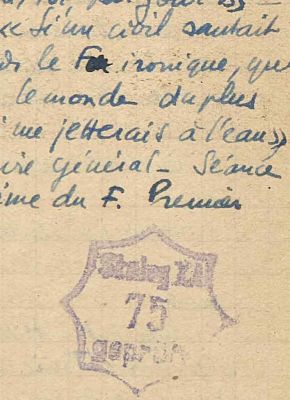 « Si un civil sautait
le F ironique, que
le monde du plus
me jetterais à l'eau »
général - Séance
du F. Premier
Stalag XA
75
geprüft